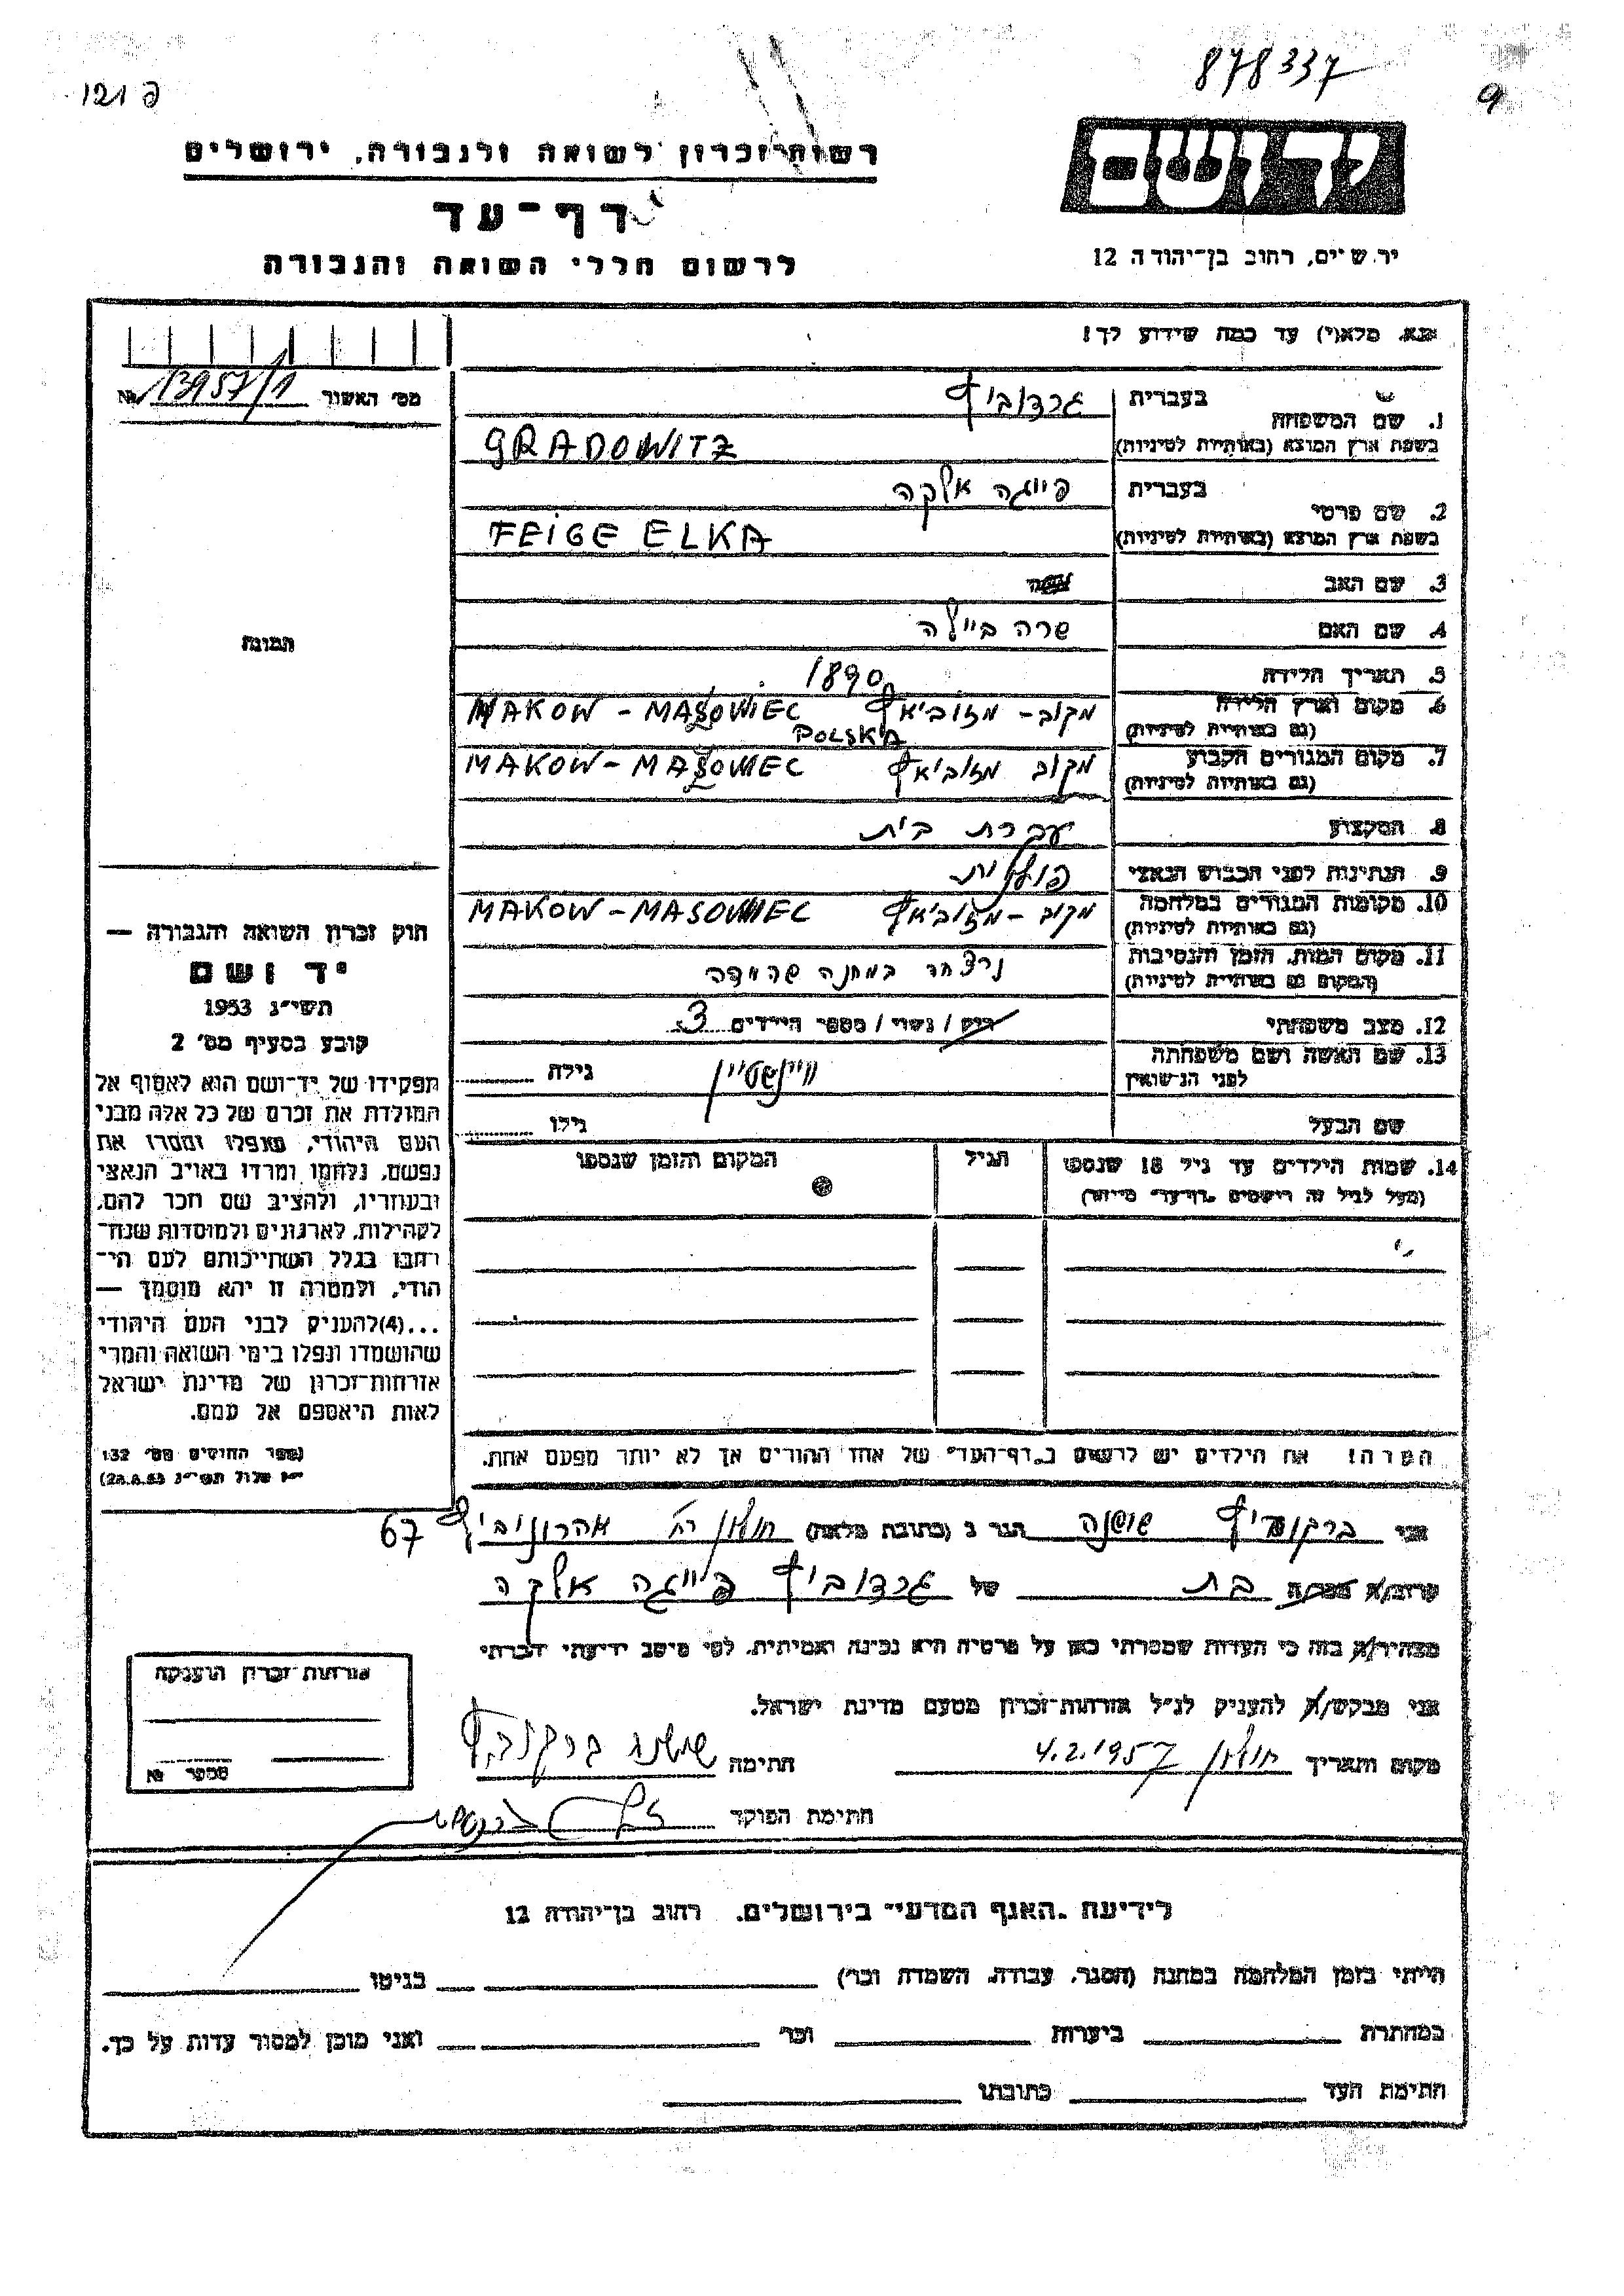 878337
פ 121
9
יד ושם
רשות זכרון לשואה ולגבורה, ירושלים
דף-עד
לרשום חללי השואה והגבורה
רחוב בן-יהודה 12
אנא, מלא(י) עד כמה שידוע לך!
מס' האשור № 13957/1
1. שם המשפחה
בעברית
גרדוביץ
בשפת ארץ המוצא (באותיות לטיניות)
GRADOWITZ
2. שם פרטי
בעברית
פייגה אלקה
בשפת ארץ המוצא (באותיות לטיניות)
FEIGE ELKA
3. שם האב
4. שם האם שרה ביילה
5. תאריך הלידה 1890
6. מקום וארץ הלידה מקוב - מזוביאץ MAKOW - MASOWIEC
(גם באותיות לטיניות) POLSKA
7. מקום המגורים הקבוע מקוב מזוביאץ MAKOW - MASOWIEC
(גם באותיות לטיניות)
8. המקצוע עקרת בית
9. הנתינות לפני הכבוש הנאצי פולנית
10. מקומות המגורים במלחמה מקוב - מזוביאץ MAKOW - MASOWIEC
(גם באותיות לטיניות)
11. מקום המות, הזמן והנסיבות
(המקום גם באותיות לטיניות)
נרצחה במחנה שהמדה
12. מצב משפחתי רווק / נשוי / מספר הילדים 3
13. שם האשה ושם משפחתה
לפני הנישואין
ויינשטיין גילה
שם הבעל גילו
14. שמות הילדים עד גיל 18 שנספו
(מעל לגיל זה רושמים "דף-עד" מיוחד)
הגיל
המקום והזמן שנספו
הערה! את הילדים יש לרשום ב"דף-העד" של אחד ההורים אך לא יותר מפעם אחת.
התמונה
חוק זכרון השואה והגבורה —
יד ושם
תשי"ג 1953
קובע בסעיף מס' 2
תפקידו של יד-ושם הוא לאסוף אל
המולדת את זכרם של כל אלה מבני
העם היהודי, שנפלו ומסרו את
נפשם, נלחמו ומרדו באויב הנאצי
ובעוזריו, ולהציב שם וזכר להם,
לקהילות, לארגונים ולמוסדות שנח-
רבו בגלל השתייכותם לעם הי-
הודי, ולמטרה זו יהא מוסמך —
...(4)להעניק לבני העם היהודי
שהושמדו ונפלו בימי השואה והמרי
אזרחות-זכרון של מדינת ישראל
לאות היאספם אל עמם.
(ספר החוקים מס' 132
אלול תשי"ג 28.8.53)
אני שושנה הגר ב (כתובת מלאה) חולון רח' אהרונוביץ 67
קרוב/ה מכר/ה בת של גרדוביץ פייגה אלקה
מצהיר/ה בזה כי העדות שמסרתי כאן על פרטיה היא נכונה ואמיתית, לפי מיטב ידיעתי והכרתי
אני מבקש/ת להעניק לנ"ל אזרחות-זכרון מטעם מדינת ישראל.
מקום ותאריך חולון 4.2.1957 חתימה
חתימת הפוקד
אזרחות-זכרון הוענקה
מספר №
לידיעת "האגף המדעי" בירושלים, רחוב בן-יהודה 12
הייתי בזמן המלחמה במחנה (הסגר, עבודה, השמדה וכו') בגיטו
במחתרת ביערות וכו' ואני מוכן למסור עדות על כך.
חתימת העד כתובתו